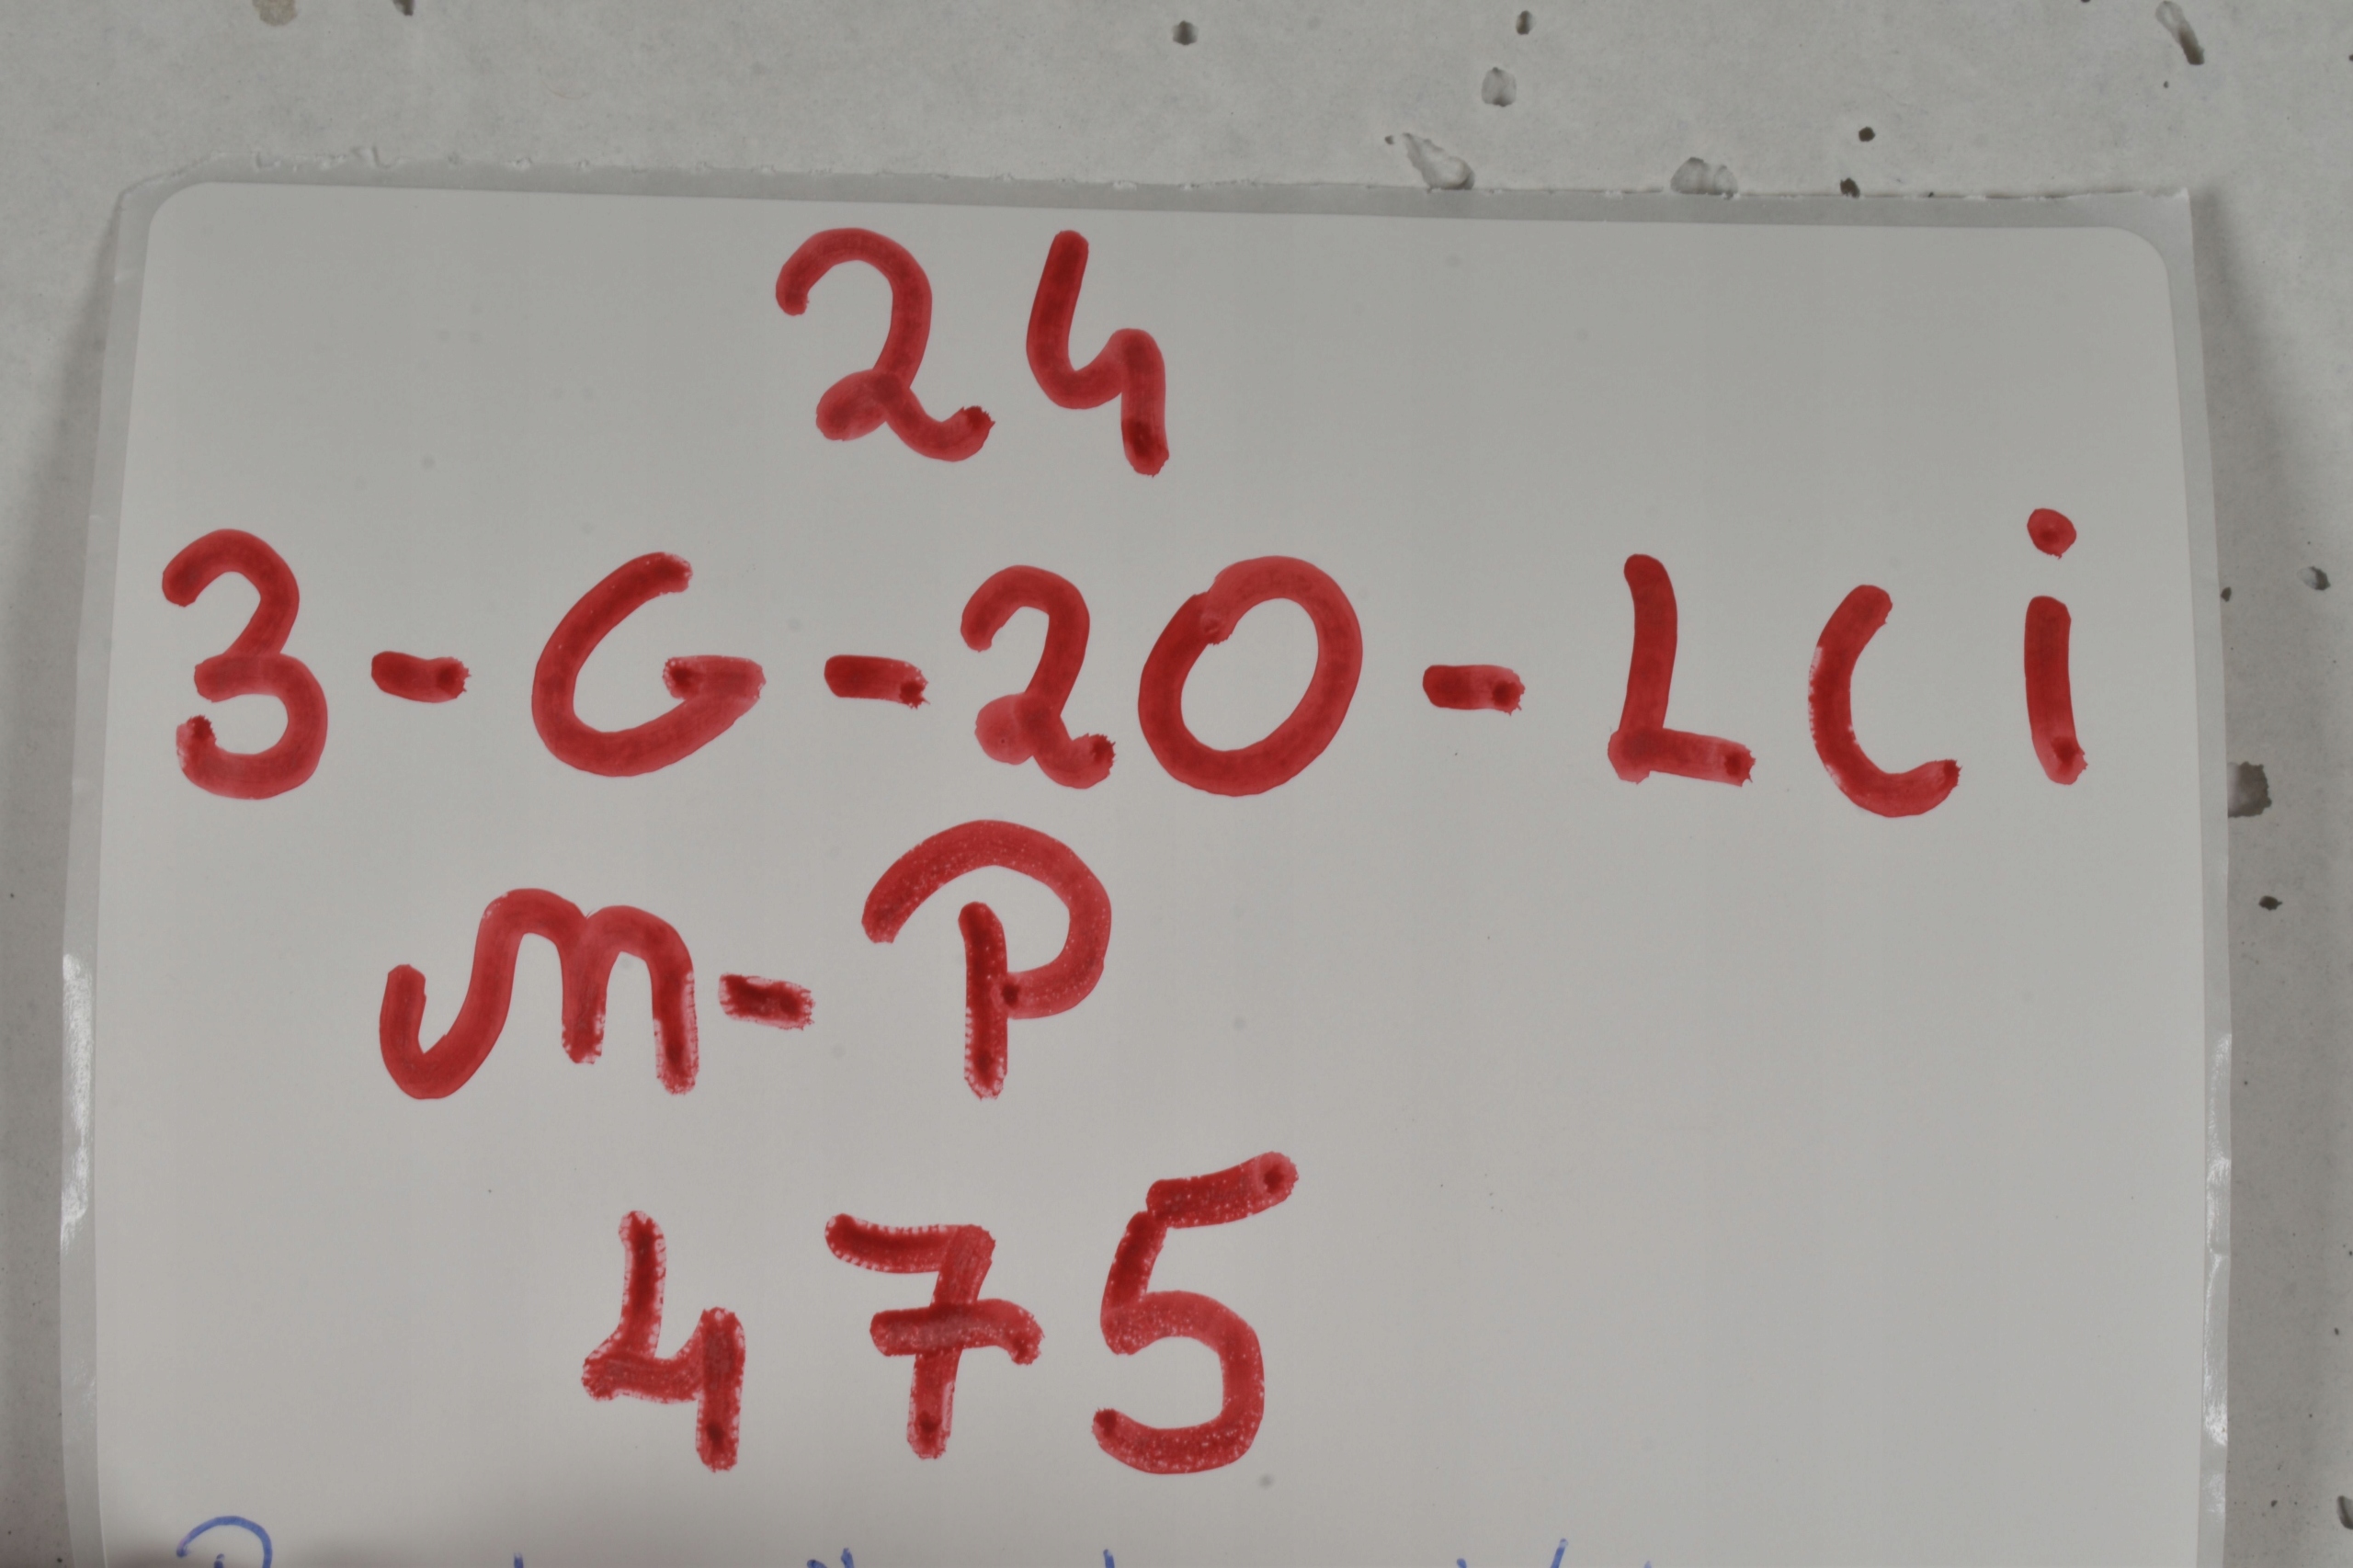 24
3-G-20-LCi
m-P
475